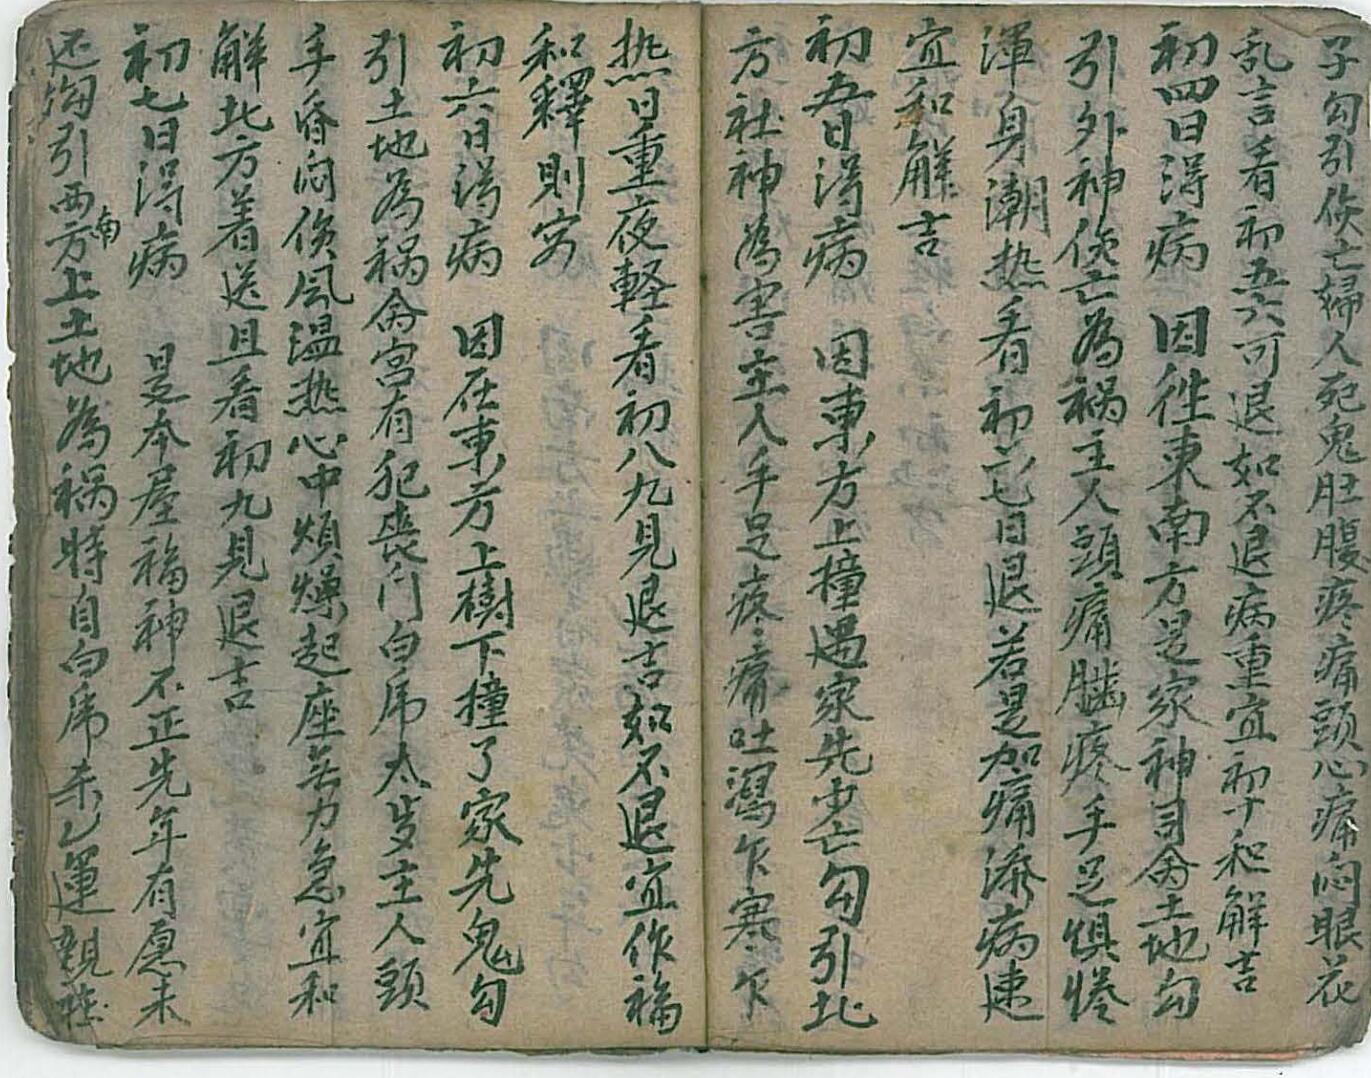 子勾引傷亡婦人死鬼肚腹疼痛頭心痛悶眼花
乱言看初五六可退如不退病重宜初十和解吉
初四日得病 因往東南方是家神司命土地勾
引外神傷亡為禍主人頭痛腦疼手足俱倦
渾身潮热看初六七日退若是加痛漸病速
宜和解吉
初五日得病 因東方上撞遇家先少亡勾引北
方社神為害主人手足疼痛吐瀉乍寒乍
热日重夜軽看初八九見退吉如不退宜作福
和釋則安
初六日得病 因在東方上樹下撞了家先鬼勾
引土地為禍命宮有犯喪门白虎太岁主人頭
手昏悶傷風温热心中煩燥起座无力急宜和
解北方着送且看初九見退吉
初七日得病 是本屋福神不正先年有愿未
还勾引西南方上土地為禍時自白虎未乙運親